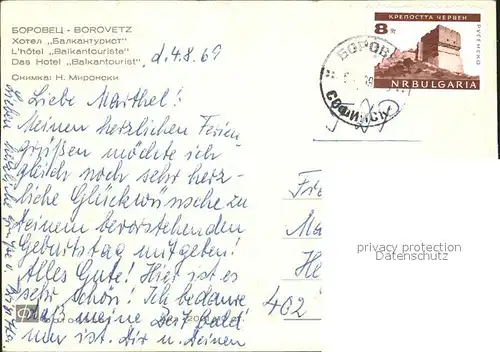 БОРОВЕЦ - BOROVETZ
Хотел „Балкантурист"
L'hôtel „Balkantouriste"
Das Hotel „Balkantourist"
Снимка: Н. Миронски
d. 4.8.69
КРЕПОСТТА ЧЕРВЕН
8 ст
РУСЕНСКО
NR BULGARIA
БОРОВ
Liebe Maithel!
Meinen herzlichen Ferien
grüßen möchte ich
gleich noch sehr herz-
liche Glückwünsche zu
Deinem bevorstehenden
Geburtstag mitgeben!
Alles Gute! Hier ist es
sehr schön! Ich bedaure
daß meine Zeit bald
um ist. Dir u. Deinen
Lieben herzliche
Fr
Ma
He
402
privacy protection
Datenschutz